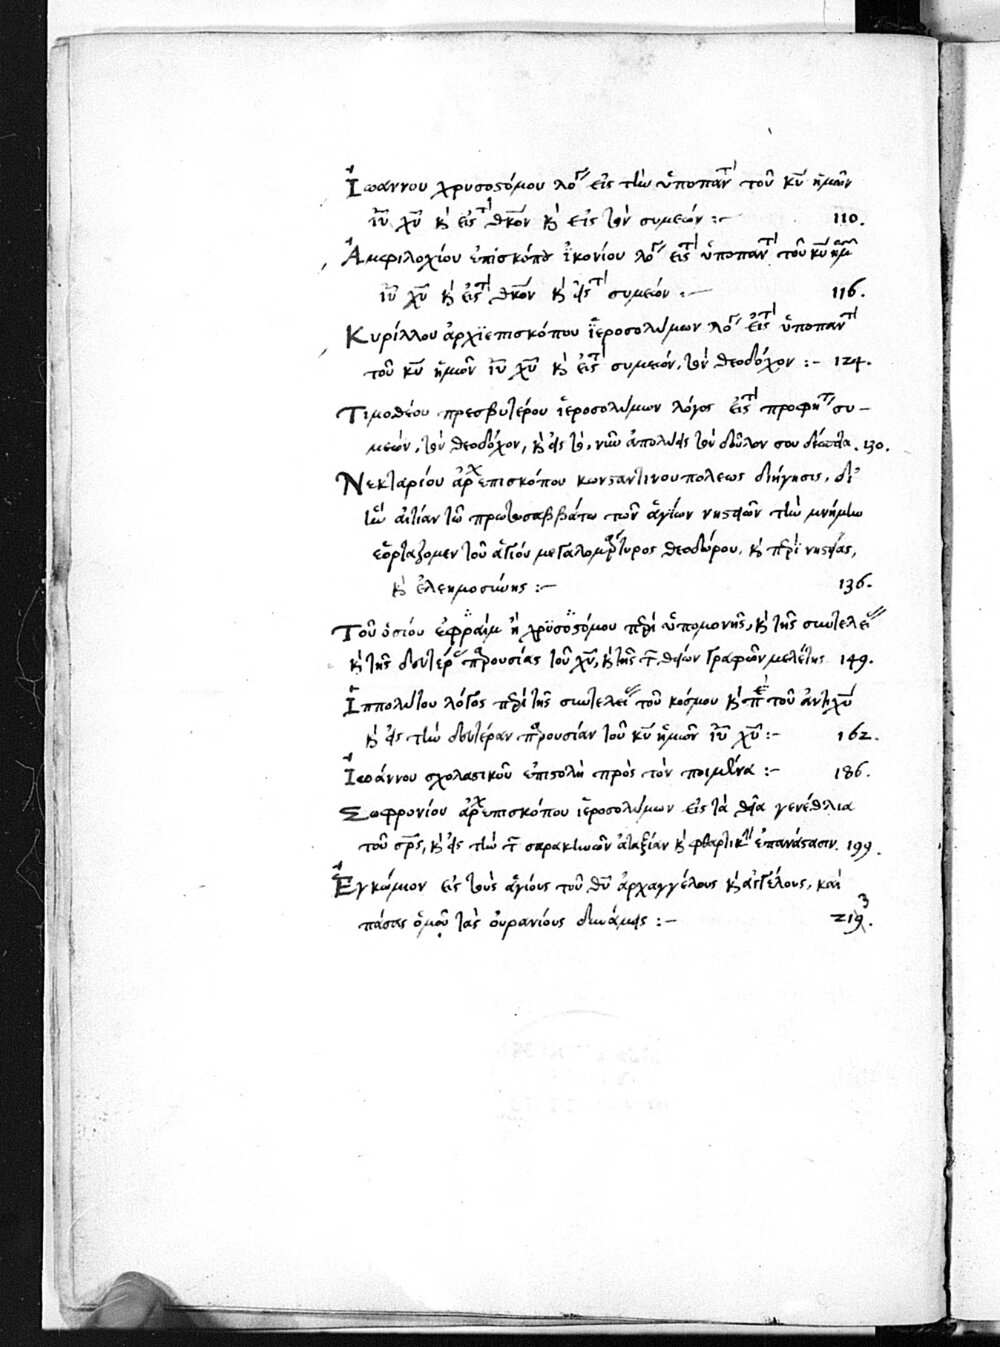 Ἰωάννου χρυσοστόμου λόγ εἰς τὴν ὑποπαντ τοῦ κυ ἡμῶν
ιυ χυ κ εἰς τ θκον κ εἰς τὸν συμεών :– 110.
Ἀμφιλοχίου ἐπισκόπου ἰκονίου λόγ εἰς τ ὑποπαντ τοῦ κυ ἡμ
ιυ χυ κ εἰς τ θκον κ εἰς τ συμεών :– 116.
Κυρίλλου ἀρχιεπισκόπου ἱεροσολύμων λόγ εἰς τ ὑποπαντ
τοῦ κυ ἡμῶν ιυ χυ κ εἰς τ συμεών, τὸν θεοδόχον :– 124.
Τιμοθέου πρεσβυτέρου ἱεροσολύμων λόγος εἰς τ προφήτ συ–
μεών, τὸν θεοδόχον, κ εἰς τὸ, νῦν ἀπολύεις τὸν δοῦλον σου δέσποτα. 130.
Νεκταρίου ἀρχεπισκόπου κωνσταντινουπόλεως διήγησις, δι'
ἣν αἰτίαν τῶ πρώτω σαββάτω τῶν ἁγίων νηστειῶν τὴν μνήμην
ἑορτάζομεν τοῦ ἁγίου μεγαλομάρτυρος θεοδώρου, κ περὶ νηστείας,
κ ἐλεημοσύνης :– 136.
Τοῦ ὁσίου ἐφραὶμ ἢ χρυσοστόμου περὶ ὑπομονῆς, κ τῆς συντελεί
κ τῆς δευτέρ παρουσίας τοῦ χυ, κ τῆς τ θείων γραφῶν μελέτης 149.
Ἱππολύτου λόγος περὶ τῆς συντελεί τοῦ κόσμου κ περὶ τοῦ ἀντιχυ
κ εἰς τὴν δευτέραν παρουσίαν τοῦ κυ ἡμῶν ιυ χυ :– 162.
Ἰωάννου σχολαστικοῦ ἐπιστολὴ πρὸς τὸν ποιμένα :– 186.
Σωφρονίου ἀρχεπισκόπου ἱεροσολύμων εἰς τὰ θεῖα γενέθλια
τοῦ σρς, κ εἰς τὴν τ σαρακηνῶν ἀταξίαν κ φθαρτικ ἐπανάστασιν. 199.
Ἐγκώμιον εἰς τοὺς ἁγίους τοῦ θυ ἀρχαγγέλους κ ἀγγέλους, καὶ
πάσας ὁμοῦ τὰς οὐρανίους δυνάμεις :– 213.